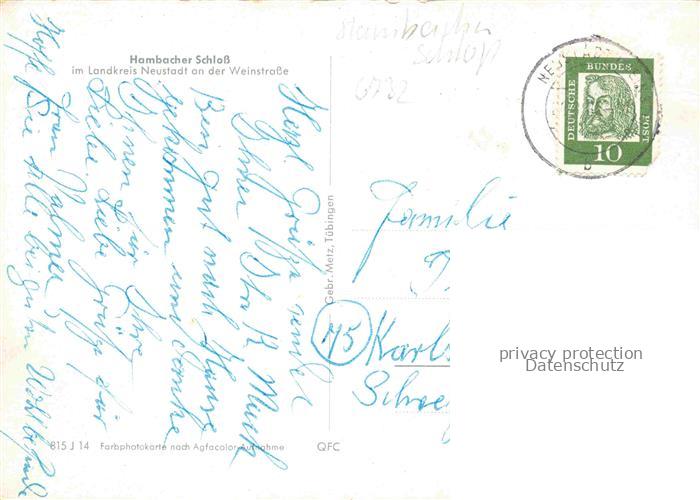 Hambacher Schloß
im Landkreis Neustadt an der Weinstraße
Hambacher
Schloß
6732
DEUTSCHE BUNDESPOST
10
b
Herzl. Grüße sendet
Bin gut nach Hause
gekommen und danke
Ihnen für Ihre
Liebe. Liebe Grüße für
Frau
Hoffe Sie alle bei gutem Wohlbefinden
Gebr. Metz, Tübingen
Familie
75 Karls
815 J 14 Farbphotokarte nach Agfacolor-Aufnahme QFC
privacy protection
Datenschutz